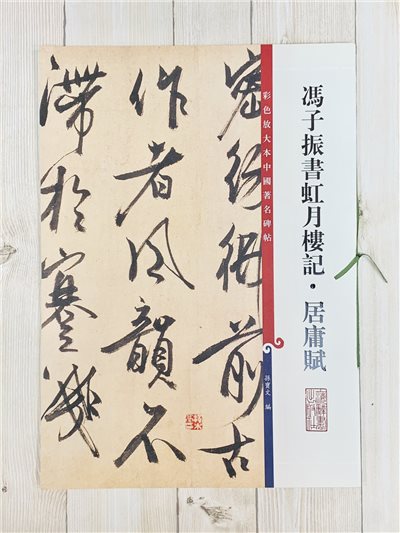 馮子振書虹月樓記·居庸賦
彩色放大本中國著名碑帖
孫寶文 編
前古
作者風韻不
滯於